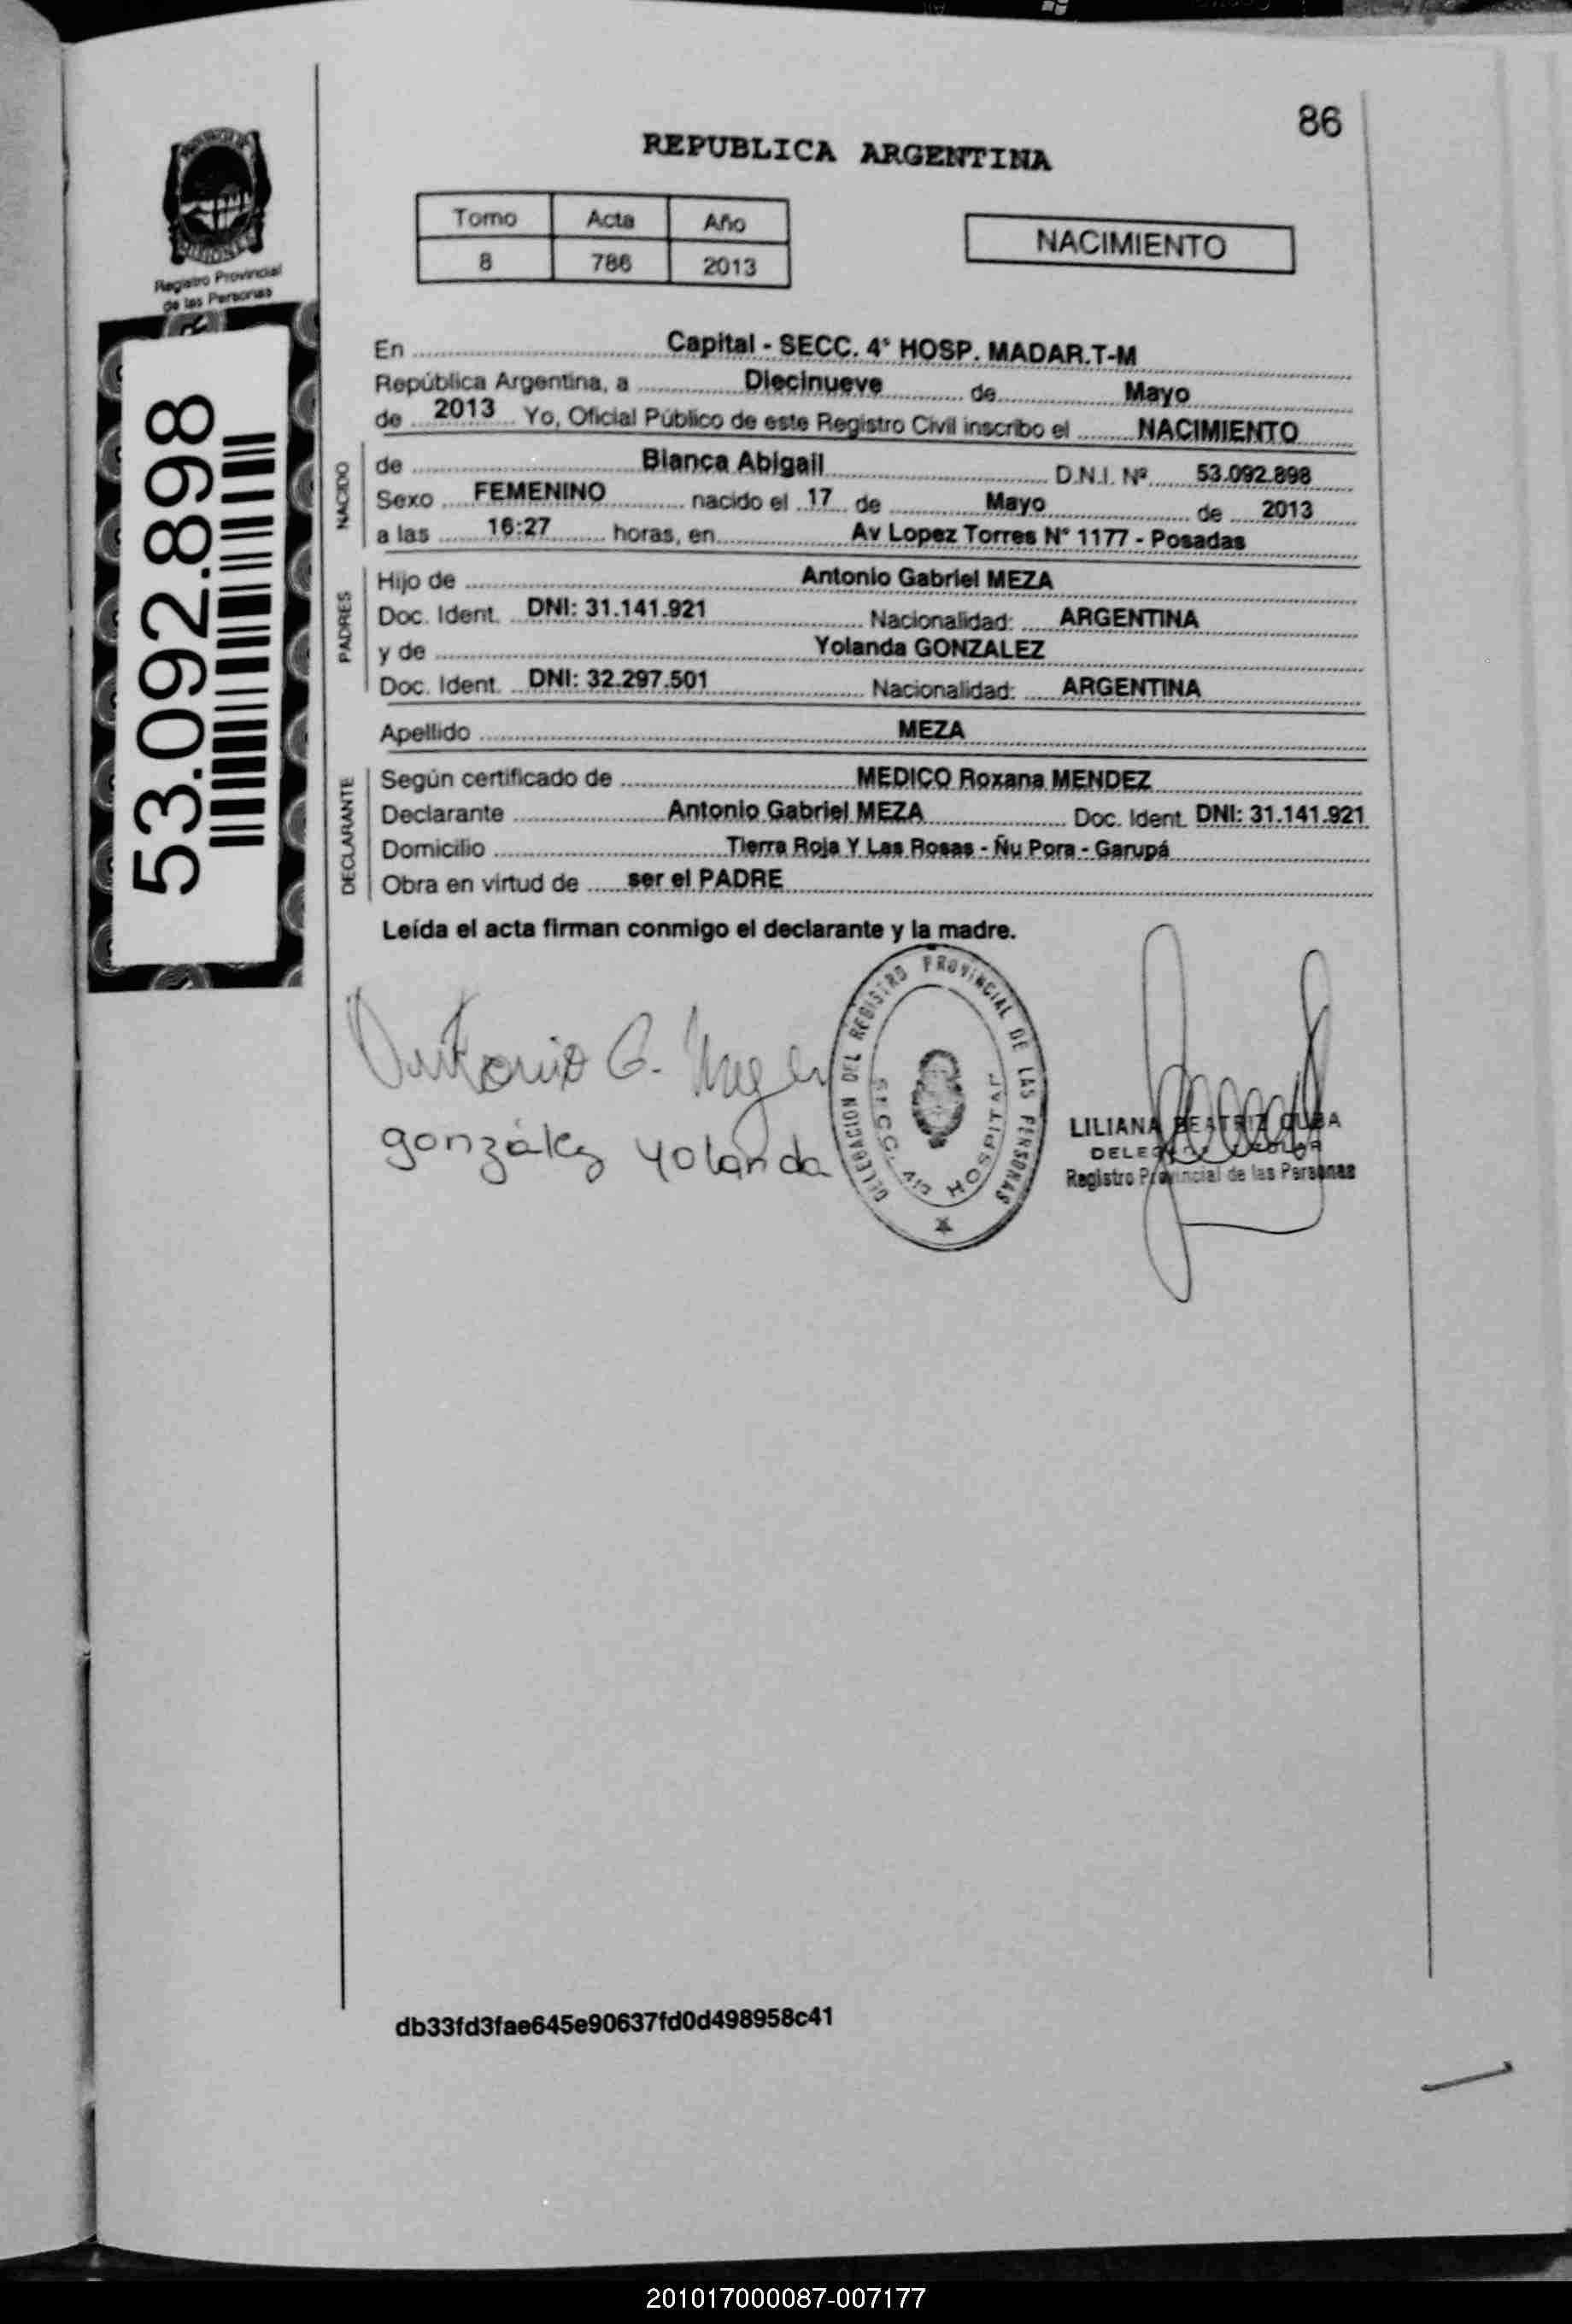 86
REPUBLICA ARGENTINA
Tomo Acta Año
8 786 2013
NACIMIENTO
Registro Provincial
de las Personas
53.092.898
En Capital - SECC. 4° HOSP. MADAR.T-M
República Argentina, a Diecinueve de Mayo
de 2013 Yo, Oficial Público de este Registro Civil inscribo el NACIMIENTO
NACIDO
de Blanca Abigail D.N.I. Nº 53.092.898
Sexo FEMENINO nacido el 17 de Mayo de 2013
a las 16:27 horas, en Av Lopez Torres N° 1177 - Posadas
PADRES
Hijo de Antonio Gabriel MEZA
Doc. Ident. DNI: 31.141.921 Nacionalidad: ARGENTINA
y de Yolanda GONZALEZ
Doc. Ident. DNI: 32.297.501 Nacionalidad: ARGENTINA
Apellido MEZA
DECLARANTE
Según certificado de MEDICO Roxana MENDEZ
Declarante Antonio Gabriel MEZA Doc. Ident. DNI: 31.141.921
Domicilio Tierra Roja Y Las Rosas - Ñu Pora - Garupá
Obra en virtud de ser el PADRE
Leída el acta firman conmigo el declarante y la madre.
Antonio G. Meza
gonzález yolanda
DELEGACION DEL REGISTRO PROVINCIAL DE LAS PERSONAS
SECC. 4ta HOSPITAL
LILIANA BEATRIZ
Registro Provincial de las Personas
db33fd3fae645e90637fd0d498958c41
201017000087-007177